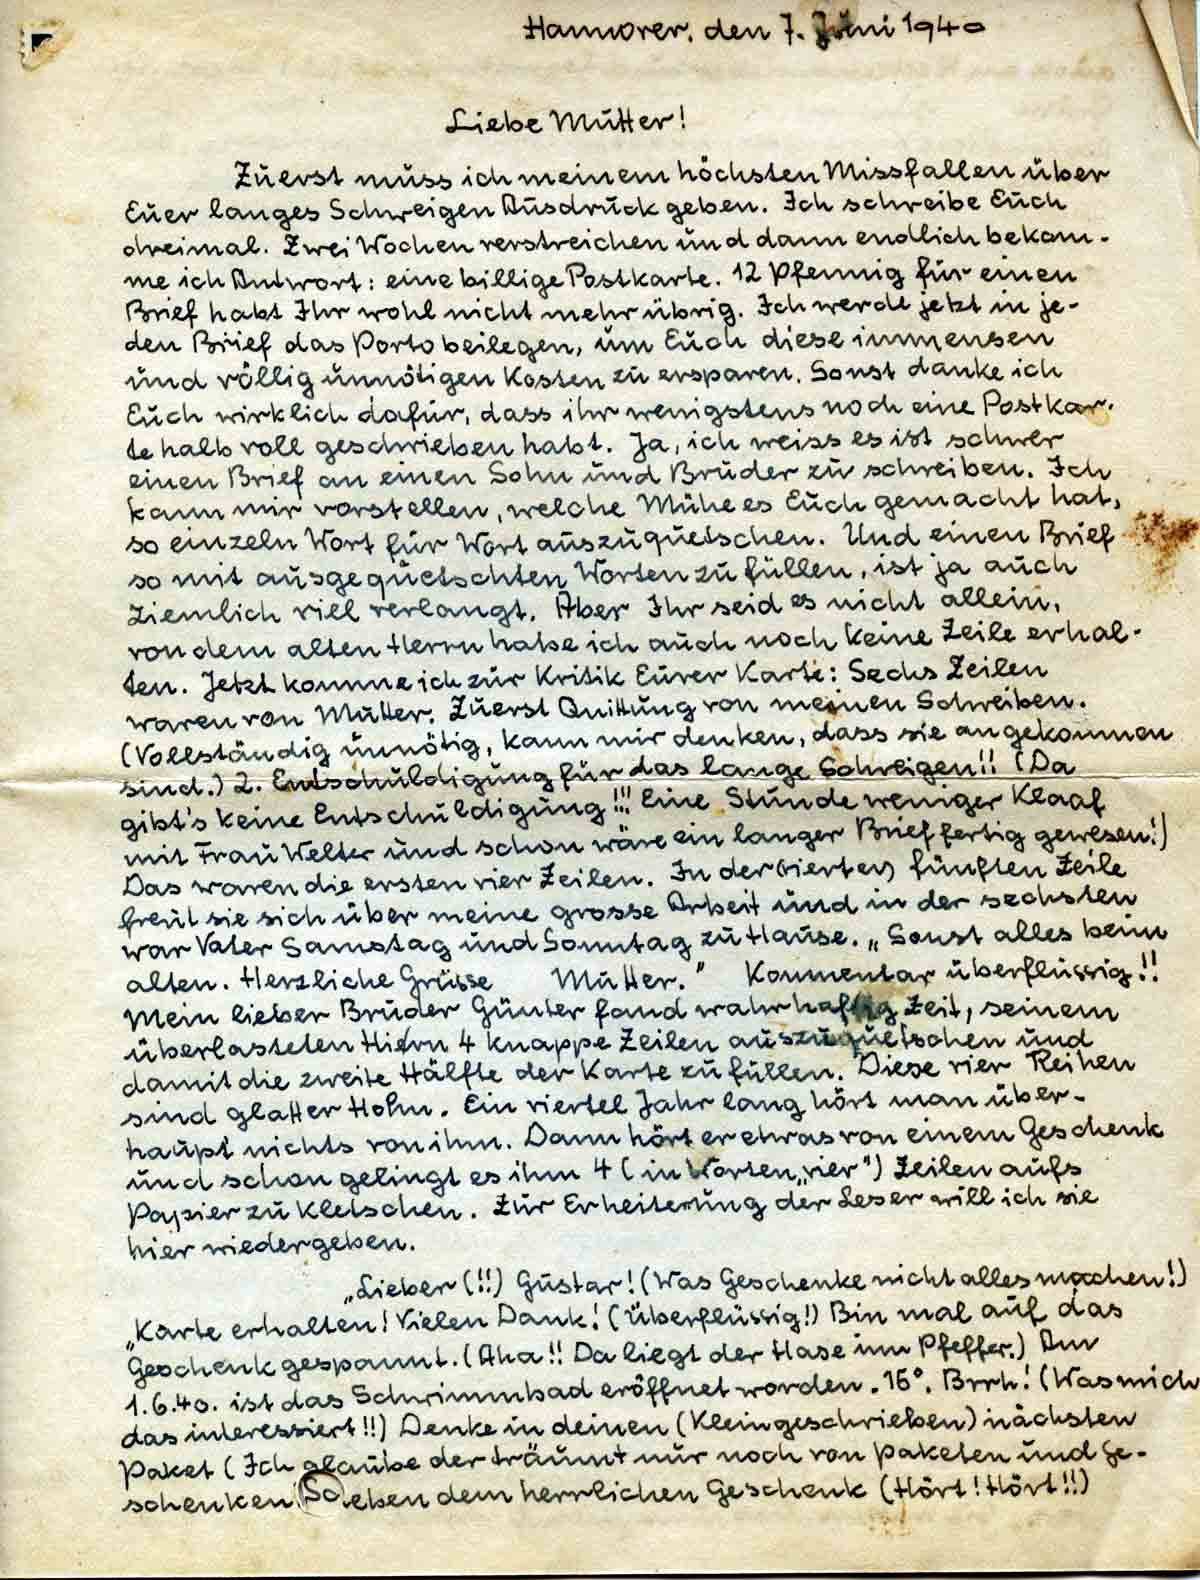 Hannover, den 7. Juni 1940
Liebe Mutter!
Zuerst muss ich meinem höchsten Missfallen über
Euer langes Schweigen Ausdruck geben. Ich schreibe Euch
dreimal. Zwei Wochen verstreichen und dann endlich bekom-
me ich Antwort: eine billige Postkarte. 12 Pfennig für einen
Brief habt Ihr wohl nicht mehr übrig. Ich werde jetzt in je-
den Brief das Porto beilegen, um Euch diese immensen
und völlig unnötigen Kosten zu ersparen. Sonst danke ich
Euch wirklich dafür, dass ihr wenigstens noch eine Postkar-
te halb voll geschrieben habt. Ja, ich weiss es ist schwer
einen Brief an einen Sohn und Bruder zu schreiben. Ich
kann mir vorstellen, welche Mühe es Euch gemacht hat,
so einzeln Wort für Wort auszuquetschen. Und einen Brief
so mit ausgequetschten Worten zu füllen, ist ja auch
ziemlich viell verlangt. Aber Ihr seid es nicht allein,
von dem alten Herrn habe ich auch noch keine Zeile erhal-
ten. Jetzt komme ich zur Kritik Eurer Karte: Sechs Zeilen
waren von Mutter. Zuerst Quittung von meinen Schreiben.
(Vollständig unnötig, kann mir denken, dass sie angekommen
sind.) 2. Entschuldigung für das lange Schweigen!! (Da
gibt's keine Entschuldigung!!! Eine Stunde weniger Klaaf
mit Frau Welter und schon wäre ein langer Brief fertig gewesen!)
Das waren die ersten vier Zeilen. In der (vierten) fünften Zeile
freut sie sich über meine grosse Arbeit und in der sechsten
war Vater Samstag und Sonntag zu Hause. „Sonst alles beim
alten. Herzliche Grüsse Mutter." Kommentar überflüssig!!
Mein lieber Bruder Günter fand wahrhaftig Zeit, seinem
überlasteten Hirn 4 knappe Zeilen auszuquetschen und
damit die zweite Hälfte der Karte zu füllen. Diese vier Reihen
sind glatter Hohn. Ein viertel Jahr lang hört man über-
haupt nichts von ihm. Dann hört er etwas von einem Geschenk
und schon gelingt es ihm 4 (in Worten „vier") Zeilen aufs
Papier zu kletschen. Zur Erheiterung der Leser will ich sie
hier wiedergeben.
„Lieber (!!) Gustav! (Was Geschenke nicht alles machen!)
„Karte erhalten! Vielen Dank! (Überflüssig!) Bin mal auf das
Geschenk gespannt. (Aha!! Da liegt der Hase im Pfeffer.) Am
1.6.40. ist das Schwimmbad eröffnet worden. 16°. Brrh! (Was mich
das interessiert!!) Denke in deinen (Kleingeschrieben) nächsten
Paket (Ich glaube der träumt nur noch von Paketen und Ge-
schenken) Soeben dem herrlichen Geschenk (Hört! Hört!!)